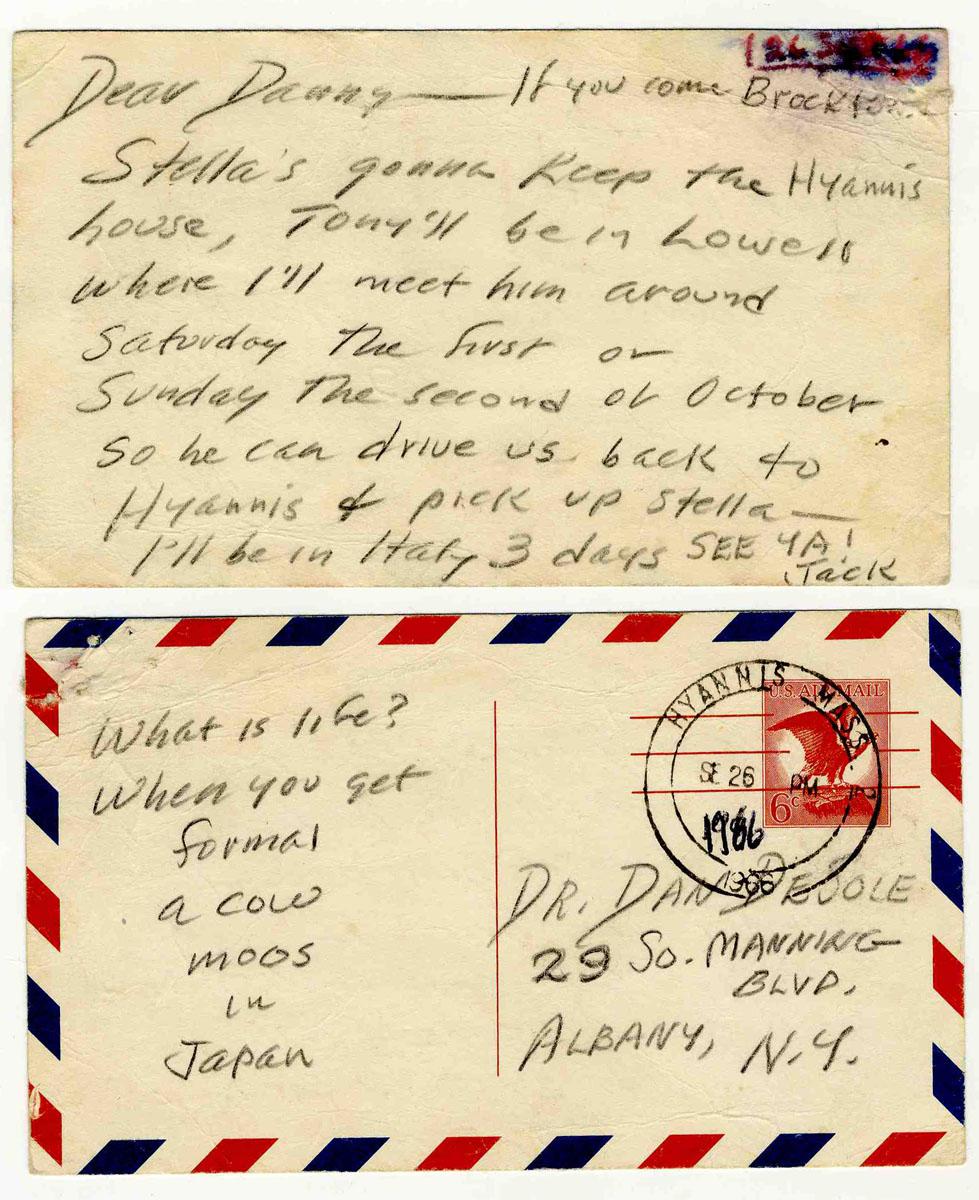 Dear Danny — If you come Brockton
Stella's gonna keep the Hyannis
house, Tony'll be in Lowell
where I'll meet him around
Saturday the first or
Sunday the second of October
so he can drive us back to
Hyannis & pick up Stella —
I'll be in Italy 3 days SEE YA!
Jack
What is life?
When you get
formal
a cow
moos
in
Japan
U.S. AIR MAIL
6c
HYANNIS MASS.
SE 26
PM
1966
1966
DR. DAN DESOLE
29 So. MANNING
BLVD.
ALBANY, N.Y.